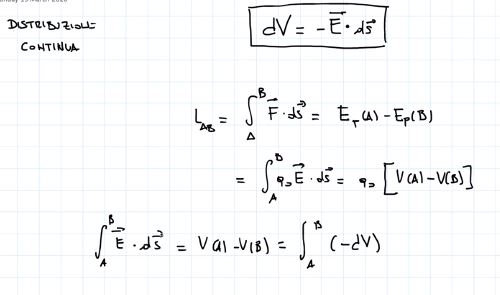 DISTRIBUZIONE
CONTINUA
dV = -E⃗ · ds⃗
L_AB = ∫_A^B F⃗ · ds⃗ = E_p(A) - E_p(B)
= ∫_A^B q₀ E⃗ · ds⃗ = q₀ [V(A) - V(B)]
∫_A^B E⃗ · ds⃗ = V(A) - V(B) = ∫_A^B (-dV)